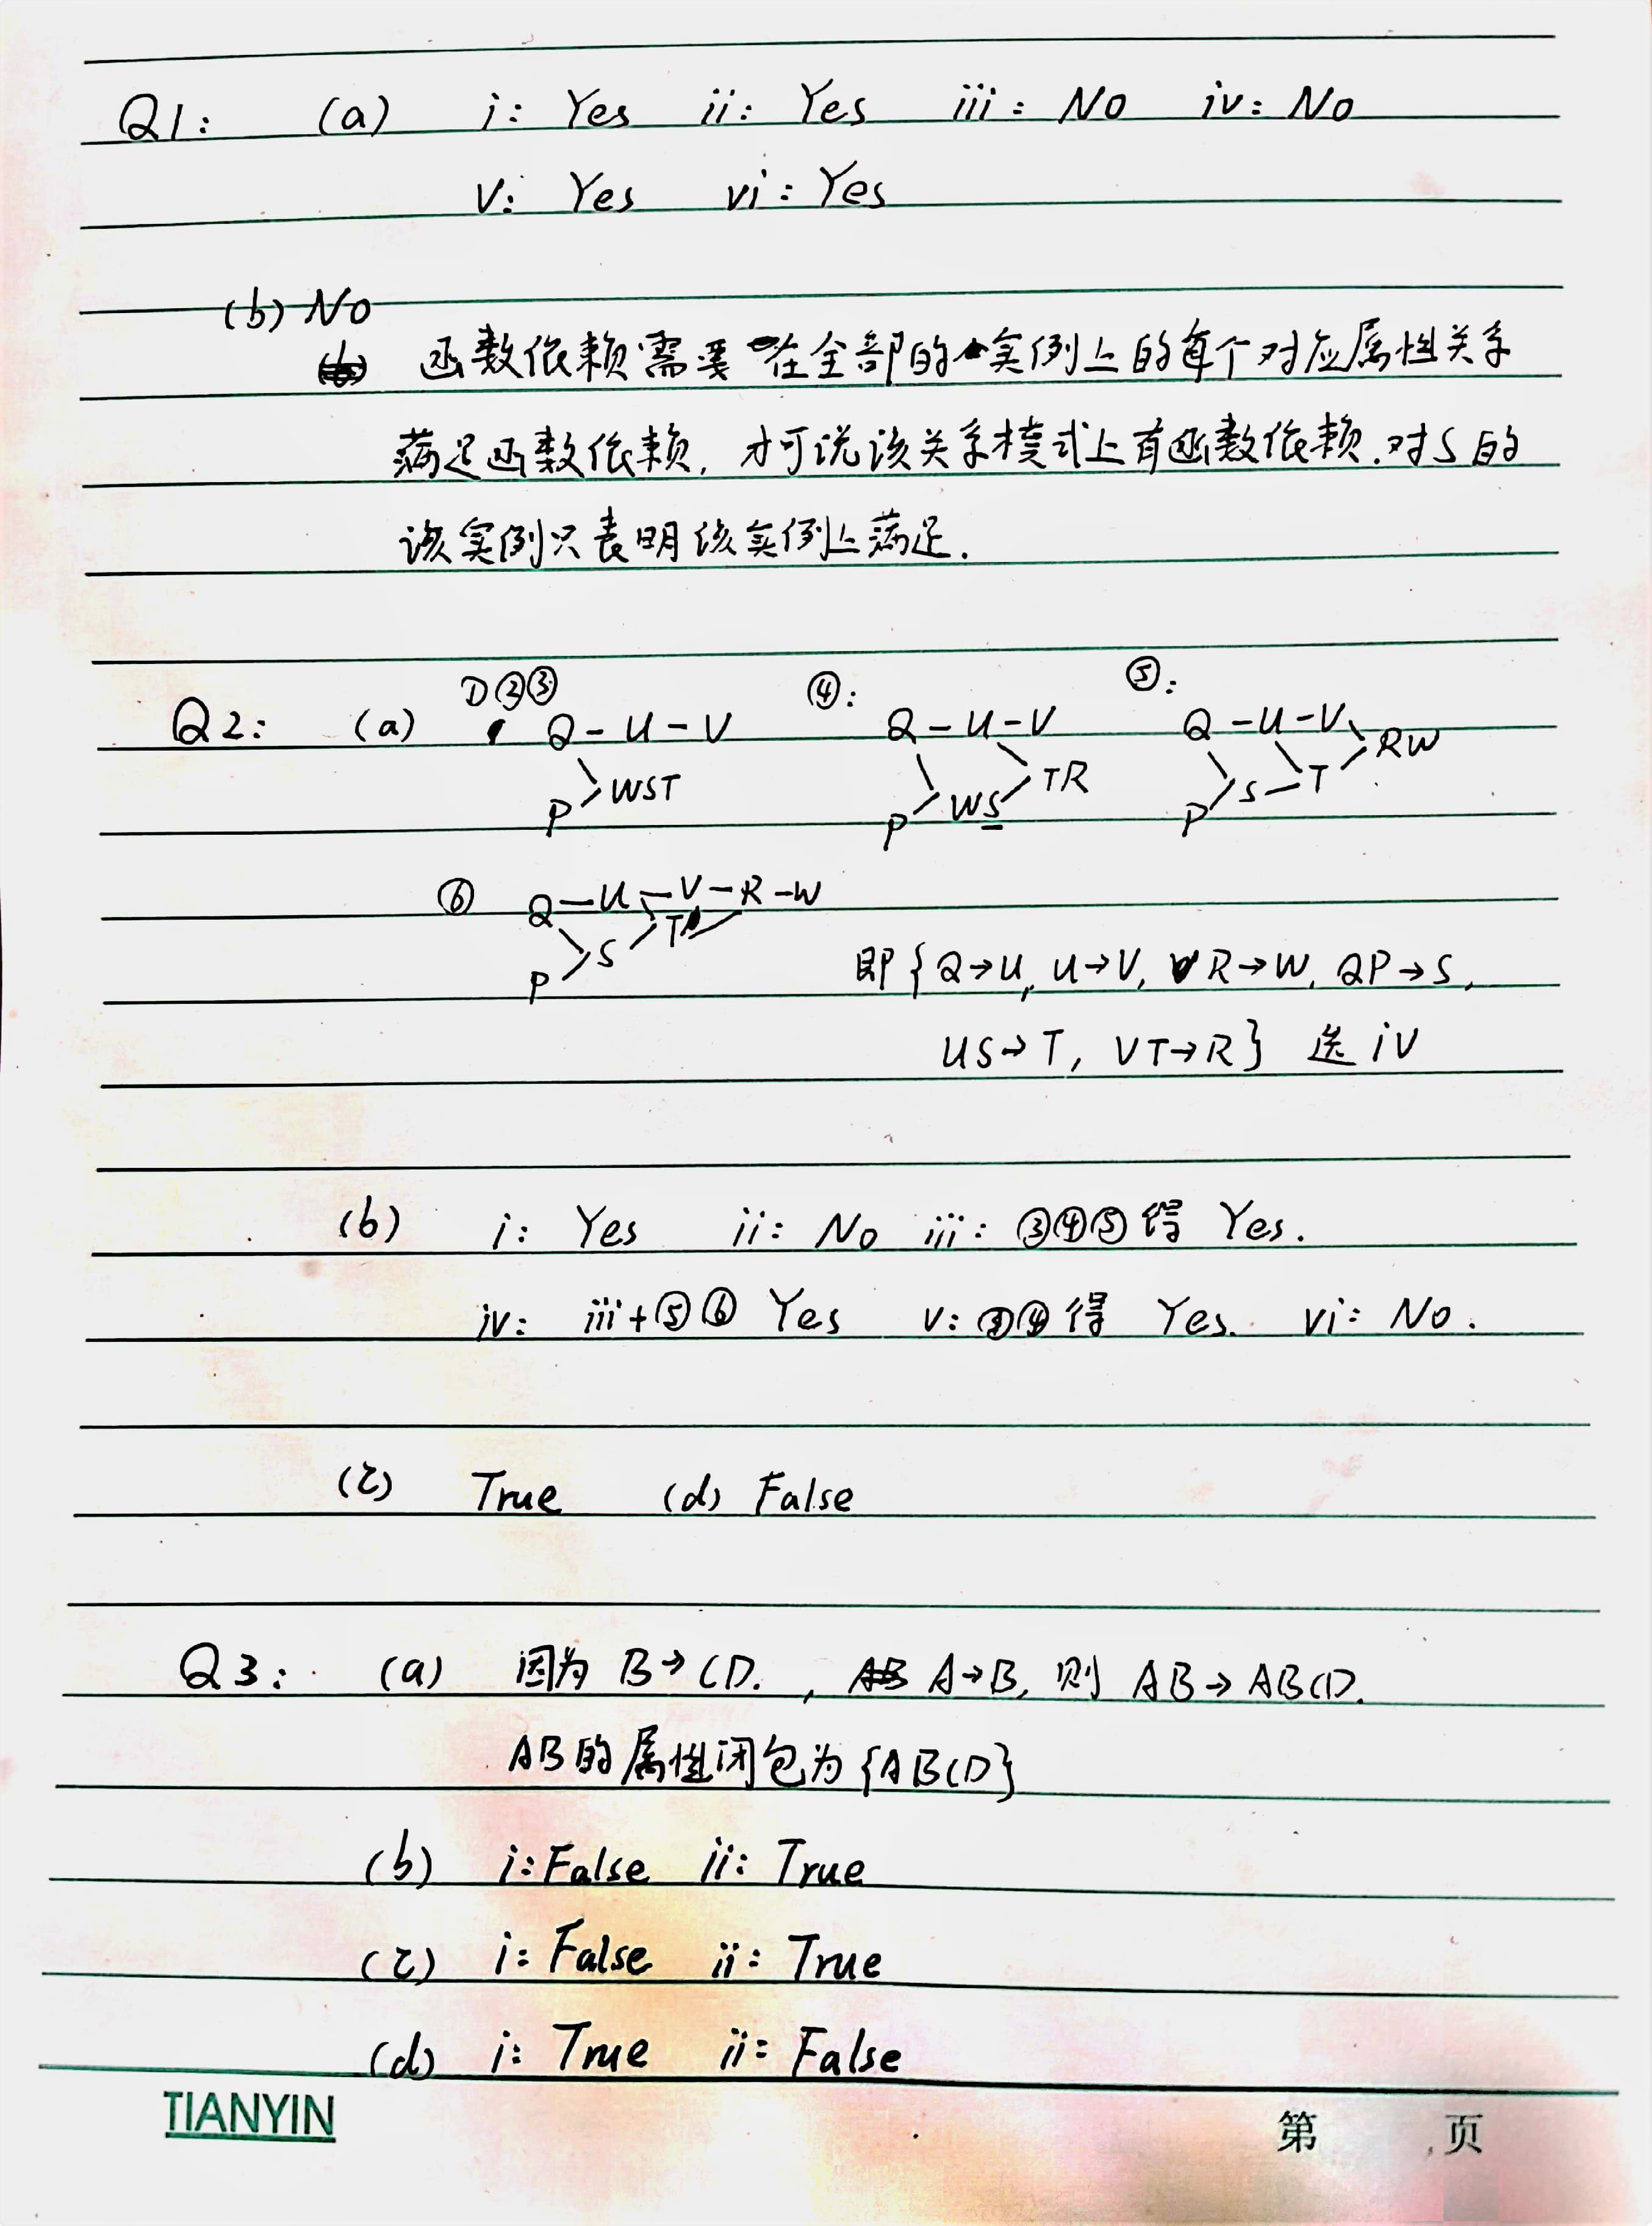 Q1: (a) i: Yes ii: Yes iii: No iv: No
v: Yes vi: Yes
(b) No
函数依赖需要在全部的实例上的每个对应属性关系
满足函数依赖, 才可说该关系模式上有函数依赖.对S的
该实例只表明该实例上满足.
Q2: (a) ①②③ ④: ⑤:
Q-U-V Q-U-V Q-U-V RW
WST TR T
P P WS P S
⑥ Q-U-V-R-W
T
S
P
即{Q→U, U→V, R→W, QP→S,
US→T, VT→R} 选 iv
(b) i: Yes ii: No iii: ③④⑤得 Yes.
iv: iii+⑤⑥ Yes v: ④得 Yes. vi: No.
(c) True (d) False
Q3: (a) 因为 B→CD. , A→B, 则 AB→ABCD.
AB的属性闭包为{ABCD}
(b) i: False ii: True
(c) i: False ii: True
(d) i: True ii: False
TIANYIN
第 页